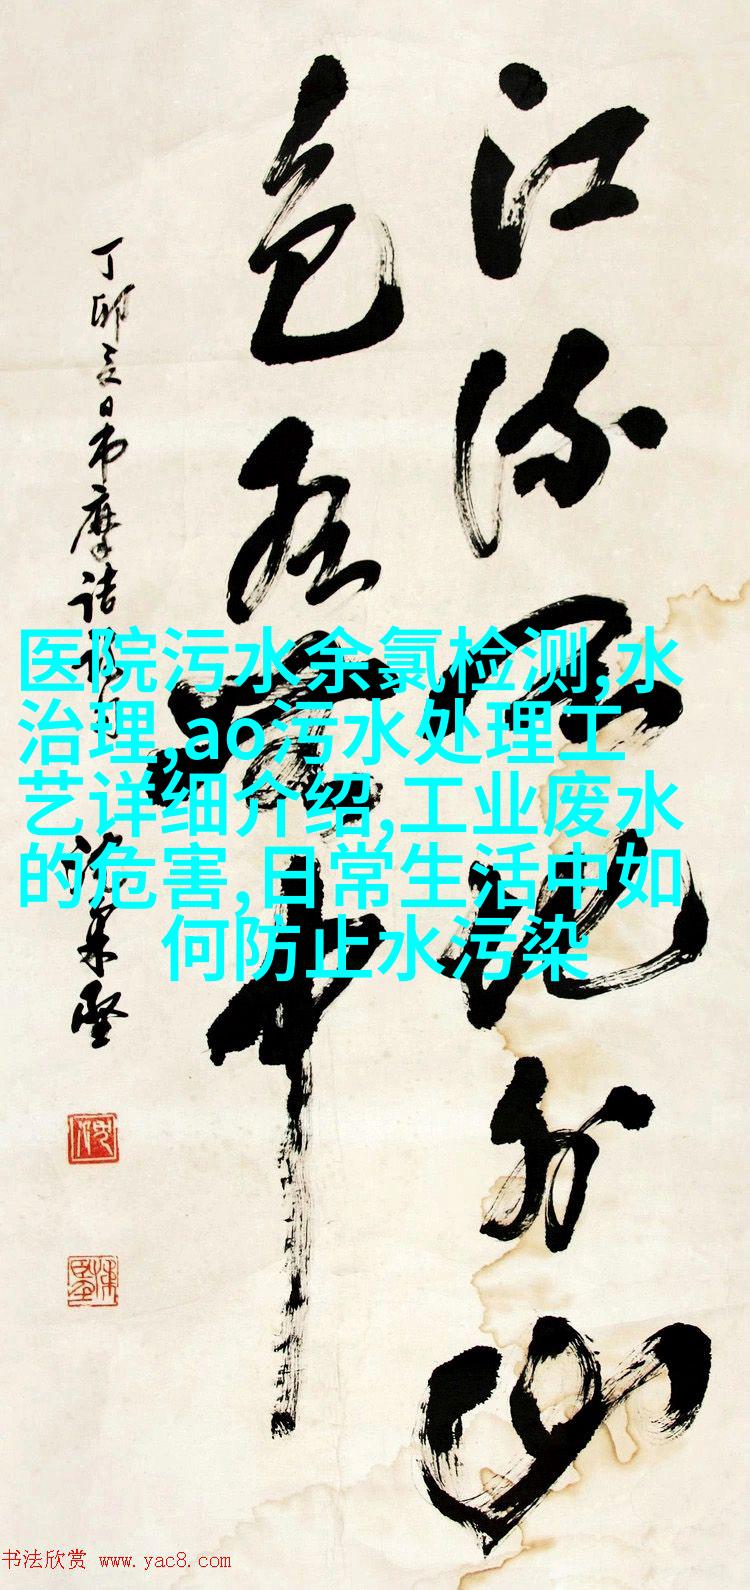 江流天地外山
色有無中
丁卯
日书摩诘
医院污水余氯检测,水
治理,ao污水处理工
艺详细介绍,工业废水
的危害,日常生活中如
何防止水污染
书法欣赏 www.yac8.com